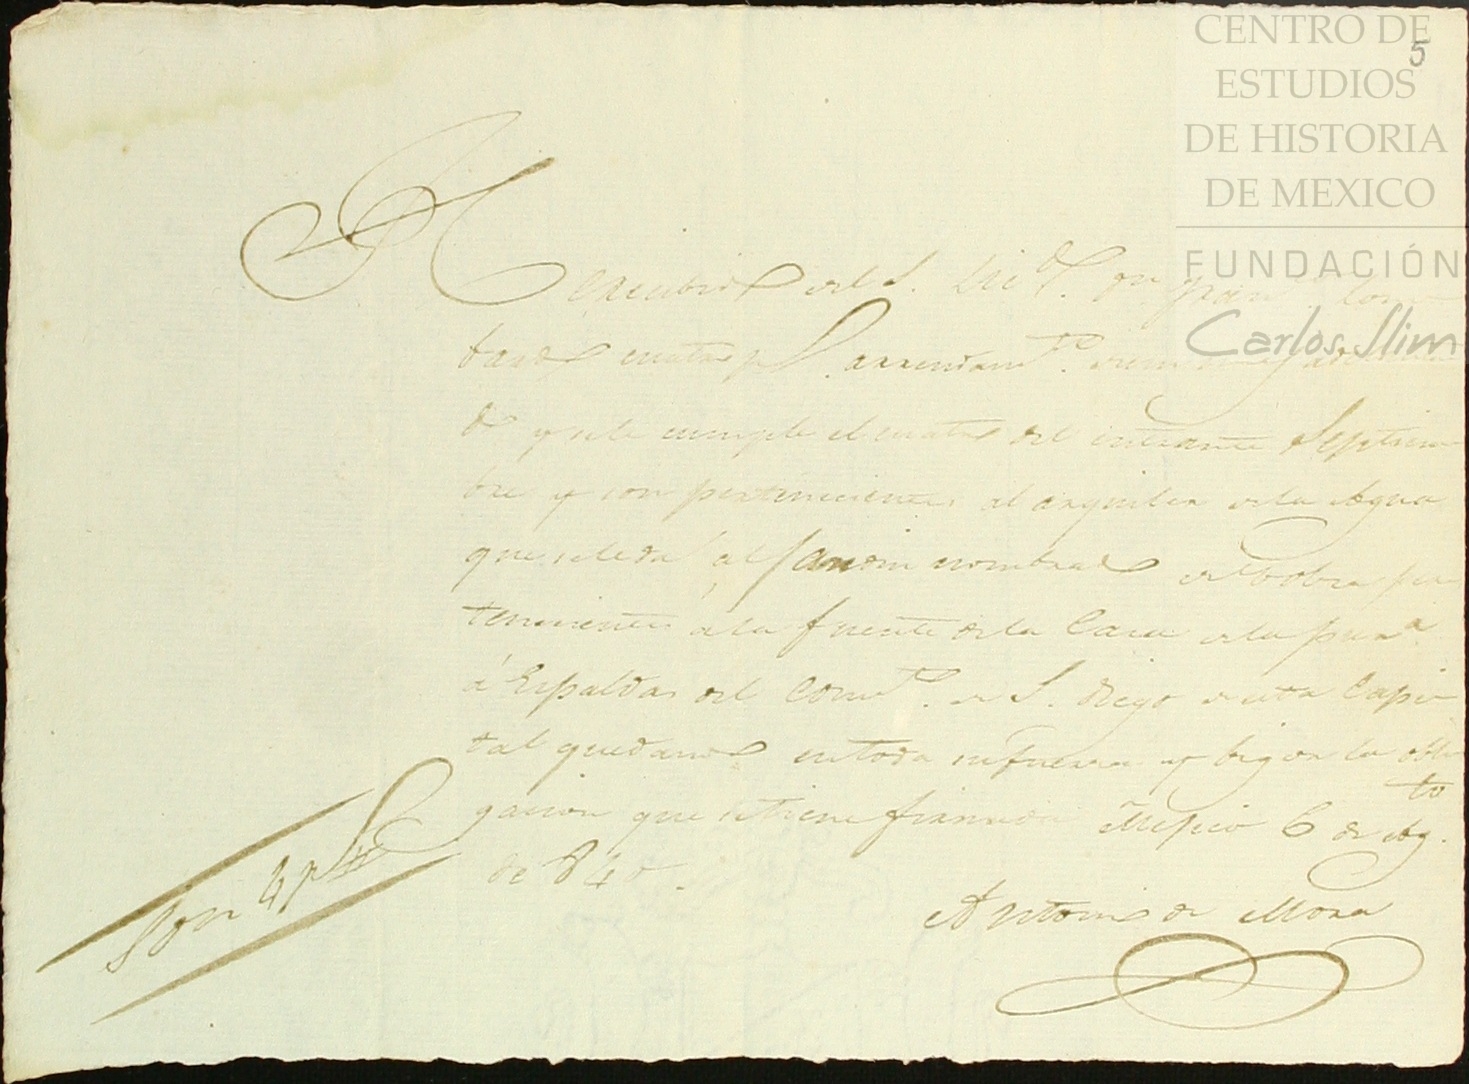 CENTRO DE
ESTUDIOS
DE HISTORIA
DE MEXICO
FUNDACIÓN
Carlos Slim
5
Rexcebido del S. Lic.do Dn Fran.co Lom
bardo cuatro p.s arrendam.to de un mes adelanta
do y se le cumple el cuatro del entrante Septiem
bre y son pertenecientes al arquiler dela Agua
que sele da al Jardin nombrado del Tobra per
tenecientes ala fuente dela Casa dela
á Espaldas del Comv.to de S. Diego de esta Capi
tal quedando en toda su fuerza y bigor la obli
gacion que tiene firmada Mejico 6 de Ag.to
de 840.
Antonio de Mora
Son 4 p.s